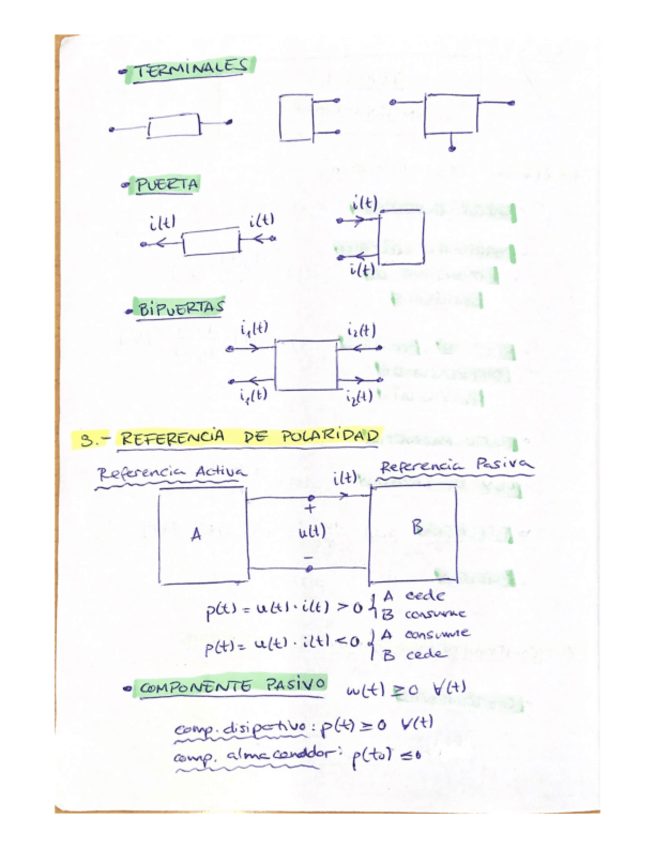 • TERMINALES
• PUERTA
i(t) i(t) i(t)
i(t)
• BIPUERTAS
i₁(t) i₂(t)
i₁(t) i₂(t)
3.- REFERENCIA DE POLARIDAD
Referencia Activa Referencia Pasiva
i(t)
+
A u(t) B
-
p(t) = u(t) · i(t) > 0 { A cede
B consume
p(t) = u(t) · i(t) < 0 { A consume
B cede
• COMPONENTE PASIVO w(t) ≥ 0 ∀(t)
comp. disipativo: p(t) ≥ 0 ∀(t)
comp. almacenador: p(t₀) ≤ 0